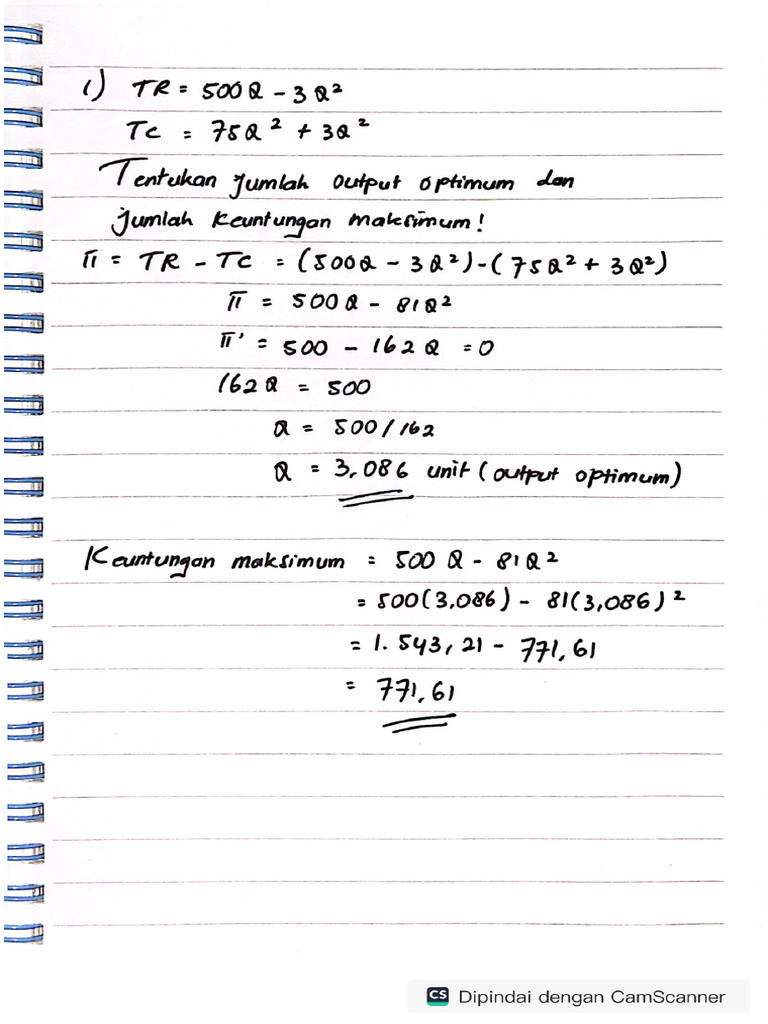 1) TR = 500Q - 3Q²
TC = 75Q² + 3Q²
Tentukan jumlah output optimum dan
jumlah keuntungan maksimum!
π = TR - TC = (500Q - 3Q²) - (75Q² + 3Q²)
π = 500Q - 81Q²
π' = 500 - 162Q = 0
162Q = 500
Q = 500/162
Q = 3,086 unit (output optimum)
Keuntungan maksimum = 500Q - 81Q²
= 500(3,086) - 81(3,086)²
= 1.543,21 - 771,61
= 771,61
CS Dipindai dengan CamScanner